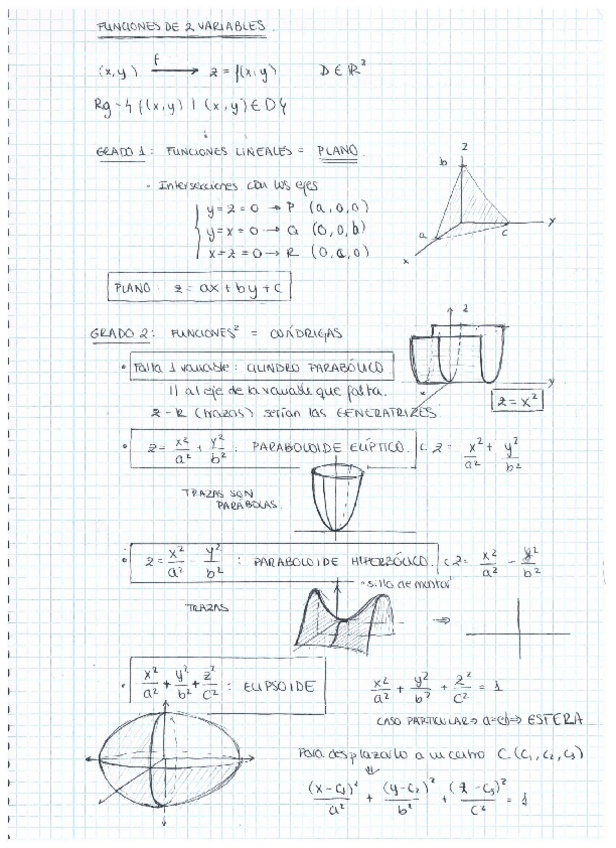 FUNCIONES DE 2 VARIABLES
(x,y) f → z = f(x,y) D ∈ R²
Rg = { f(x,y) | (x,y) ∈ D }
GRADO 1: FUNCIONES LINEALES = PLANO
- Intersecciones con los ejes
y = z = 0 → P (a,0,0)
y = x = 0 → Q (0,0,b)
x = z = 0 → R (0,c,0)
z
b
a
c
y
x
PLANO: z = ax + by + c
GRADO 2: FUNCIONES² = CUÁDRIGAS
• Falta 1 variable: CILINDRO PARABÓLICO
// al eje de la variable que falta.
z = k (trazas) serían las GENERATRICES
z
x
y
z = x²
• z = x²/a² + y²/b² : PARABOLOIDE ELÍPTICO. cz = x²/a² + y²/b²
TRAZAS SON
PARÁBOLAS.
• z = x²/a² - y²/b² : PARABOLOIDE HIPERBÓLICO. cz = x²/a² - y²/b²
"silla de montar"
TRAZAS
⇒
• x²/a² + y²/b² + z²/c² : ELIPSOIDE
x²/a² + y²/b² + z²/c² = 1
CASO PARTICULAR → ESFERA
Para desplazarlo a un centro C(C₁, C₂, C₃)
(x-C₁)²/a² + (y-C₂)²/b² + (z-C₃)²/c² = 1